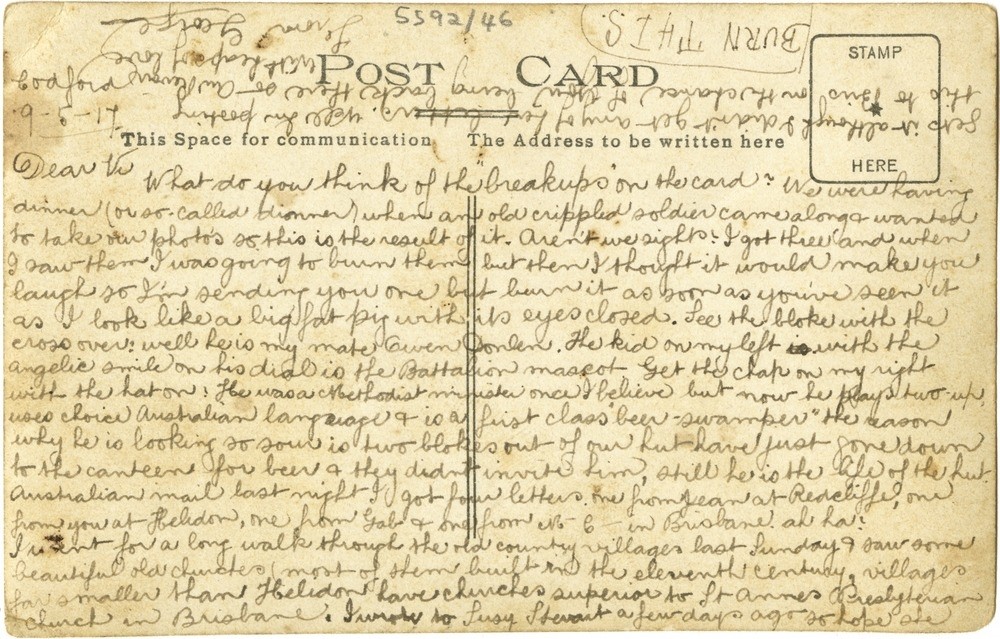 5592/46
BURN THIS
POST CARD
STAMP
HERE
This Space for communication
The Address to be written here
Codford
9-9-17
Dear Vi
What do you think of the "breakups" on the card? We were having
dinner (or so-called dinner) when an old crippled soldier came along & wanted
to take our photo's so this is the result of it. Aren't we sights? I got three and when
I saw them I was going to burn them but then I thought it would make you
laugh so I'm sending you one but burn it as soon as you've seen it
as I look like a big fat pig with its eyes closed. See the bloke with the
cross over: well he is my mate Owen Donlen. The kid on my left with the
angelic smile on his dial is the Battalion mascot Get the chap on my right
with the hat on! He was a Methodist minister once I believe but now he plays two-up,
uses choice Australian language & is a first class "beer-swamper" the reason
why he is looking so sour is two blokes out of our hut have just gone down
to the canteen for beer & they didn't invite him, still he is the life of the hut.
Australian mail last night I got four letters, one from Jean at Redcliffe, one
from you at Helidon, one from Gab & one from in Brisbane. ah ha!
I went for a long walk through the old country villages last Sunday & saw some
beautiful old churches (most of them built in the eleventh century, villages
far smaller than Helidon have churches superior to St Annes Presbyterian
church in Brisbane. I wrote to Susy Stewart a few days ago so hope she
gets it although I didn't get any of her letters. We're posting
this to on the chance of them being back there be
With heaps of love
from George